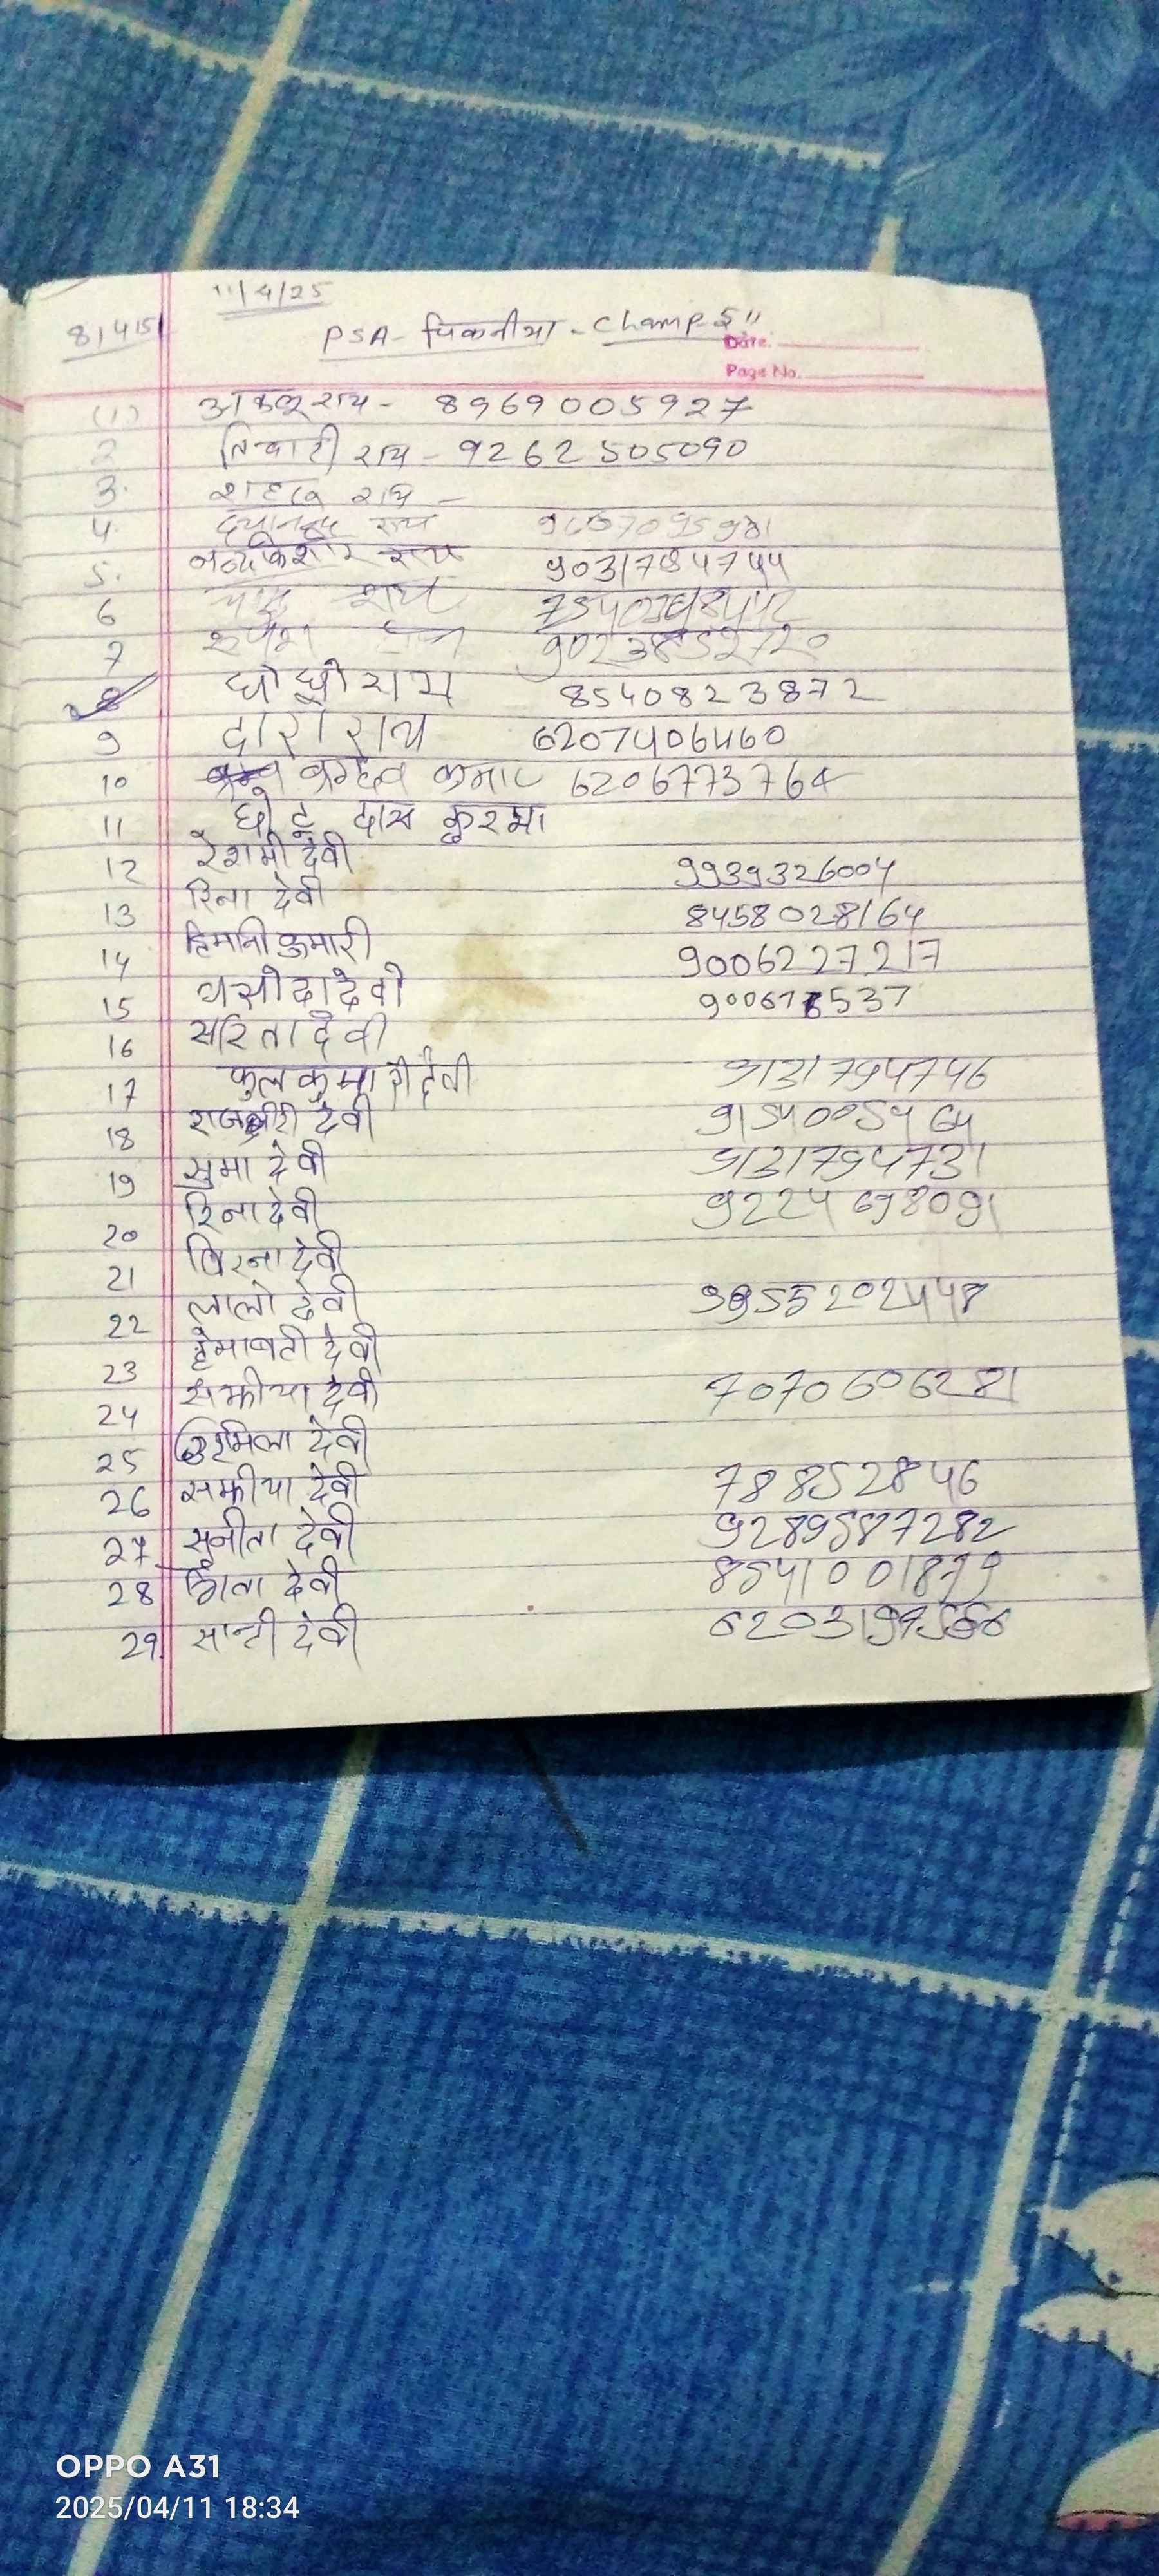 11/4/25
8/4/5
PSA - पिकनीया - Champ-5"
Date.
Page No.
(1) अकलू राय - 8969005927
2 तिवारी राय - 9262505090
3. राय -
4. दयानन्द राय
5. नन्दकिशोर राय 9031784744
6 राय
7
8 घोघो राय 8540823872
9 दारो राय 6207406460
10 ब्रम्हदेव कुमार 6206773764
11 छोटू दास कुरमा
12 रेशमी देवी 9939326004
13 रिना देवी 8458028164
14 हिमानी कुमारी 9006227217
15 यसोदा देवी
16 सरिता देवी
17 फुल कुमारी देवी 9131794746
18 देवी 9154005464
19 सुमा देवी 9131794731
20 रिना देवी 9224698091
21 बिरना देवी
22 लालो देवी 9955202448
23 हेमावती देवी
24 सझीया देवी 7070606281
25 उरमिला देवी
26 सझीया देवी 78852846
27 सुनीता देवी 9289587282
28 गिता देवी 8541001879
29 सान्टी देवी
OPPO A31
2025/04/11 18:34